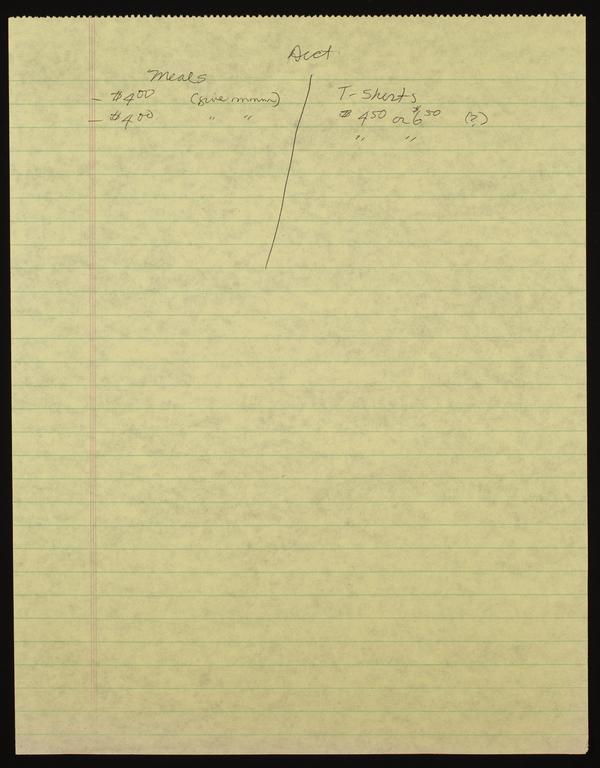 Acct.
Meals
- $4.00 (give mmm)
- $4.00 " "
T-Shirts
$4.50 or $6.50 (?)
" "